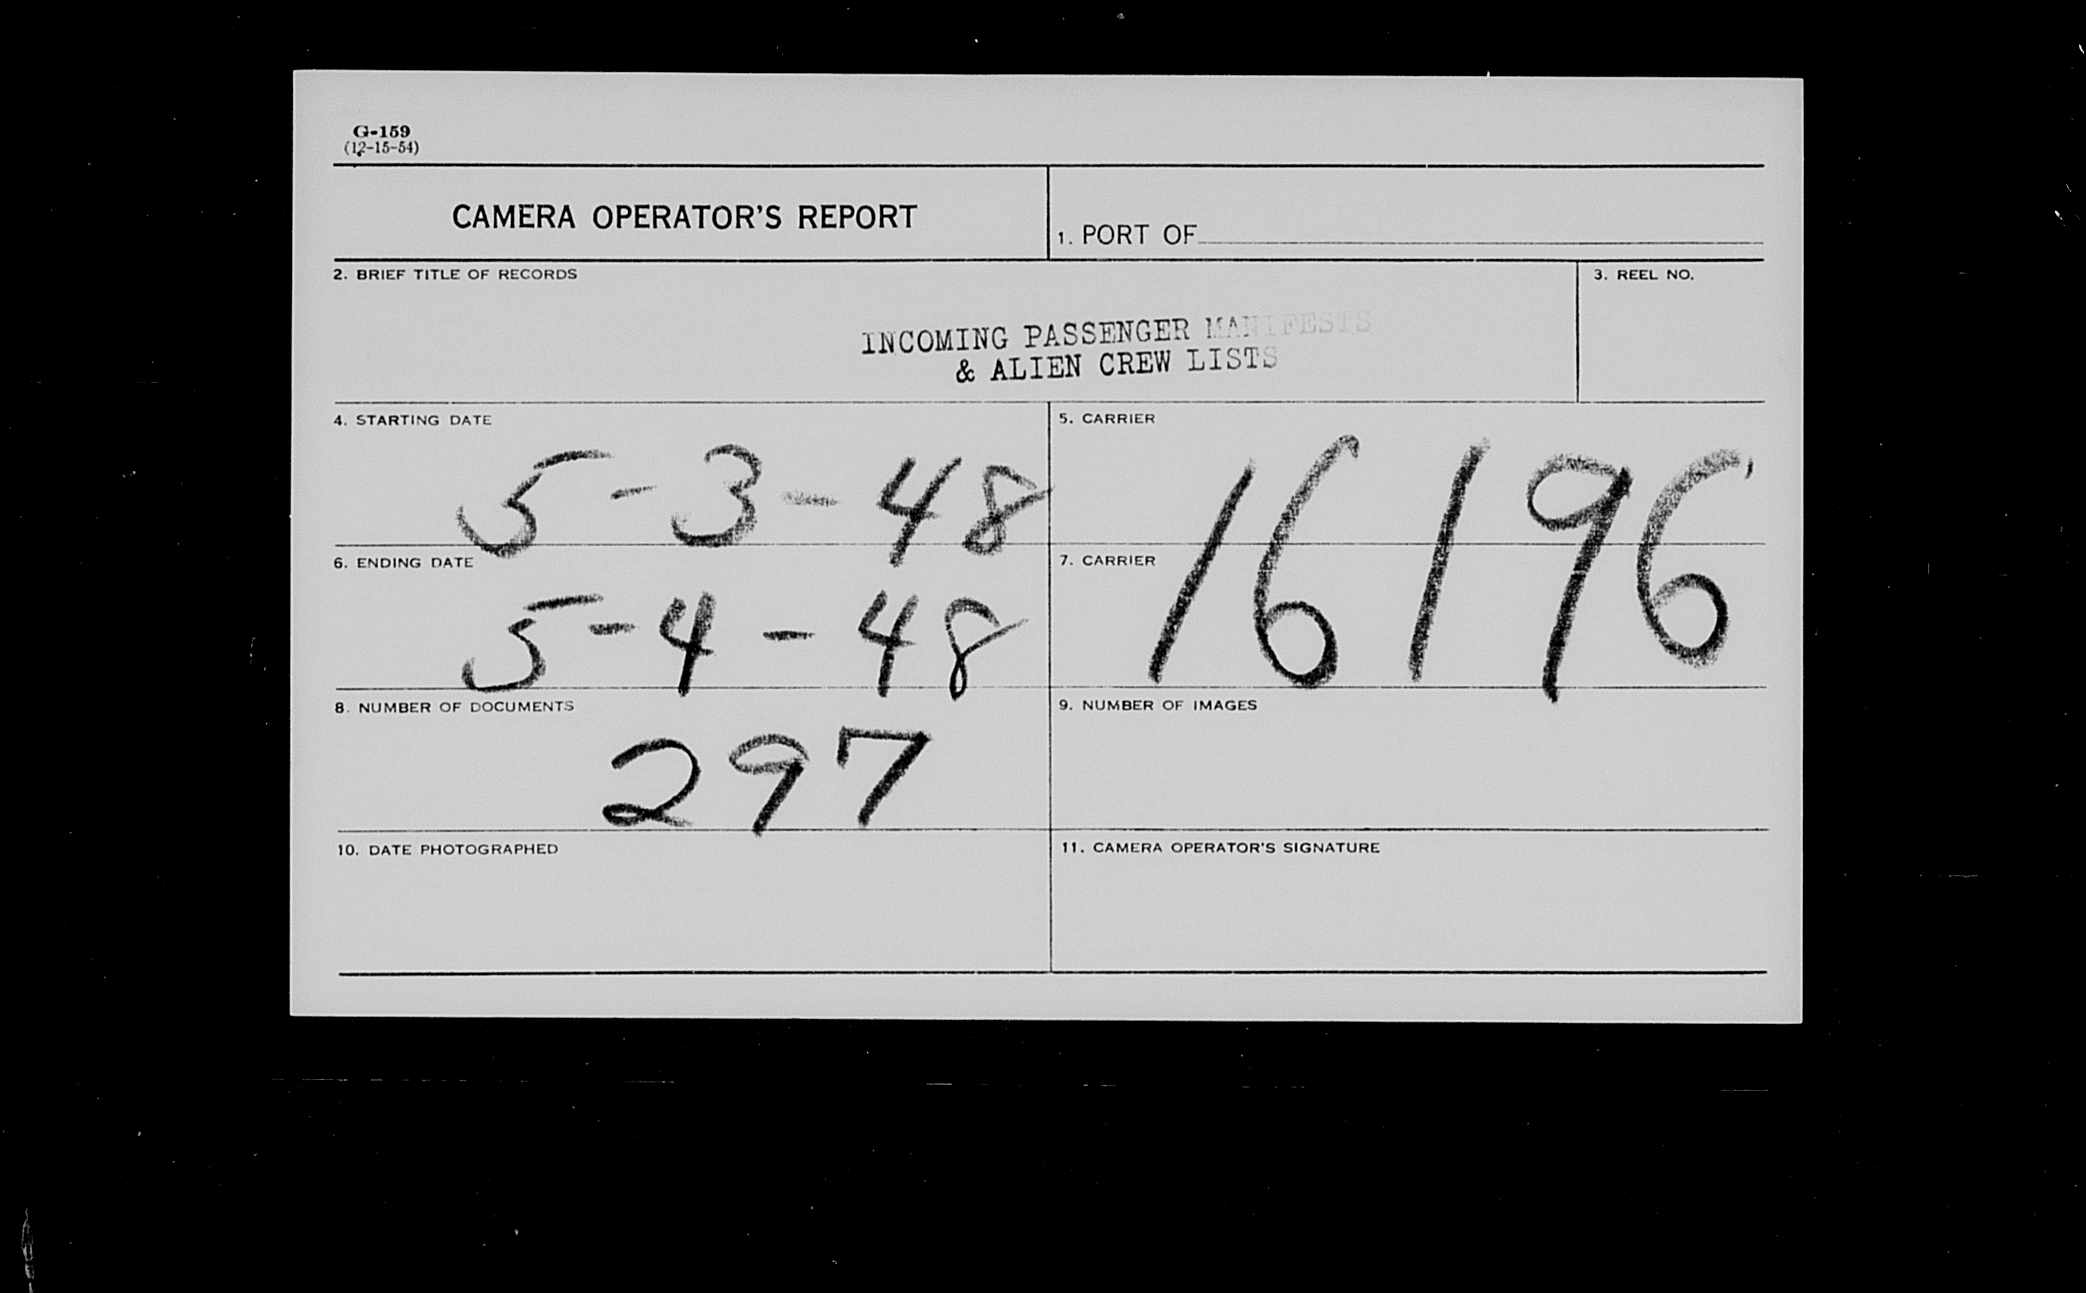 G-159
(12-15-54)
CAMERA OPERATOR'S REPORT
1. PORT OF
2. BRIEF TITLE OF RECORDS
3. REEL NO.
INCOMING PASSENGER MANIFESTS
& ALIEN CREW LISTS
4. STARTING DATE
5-3-48
5. CARRIER
16196
6. ENDING DATE
5-4-48
7. CARRIER
8. NUMBER OF DOCUMENTS
297
9. NUMBER OF IMAGES
10. DATE PHOTOGRAPHED
11. CAMERA OPERATOR'S SIGNATURE